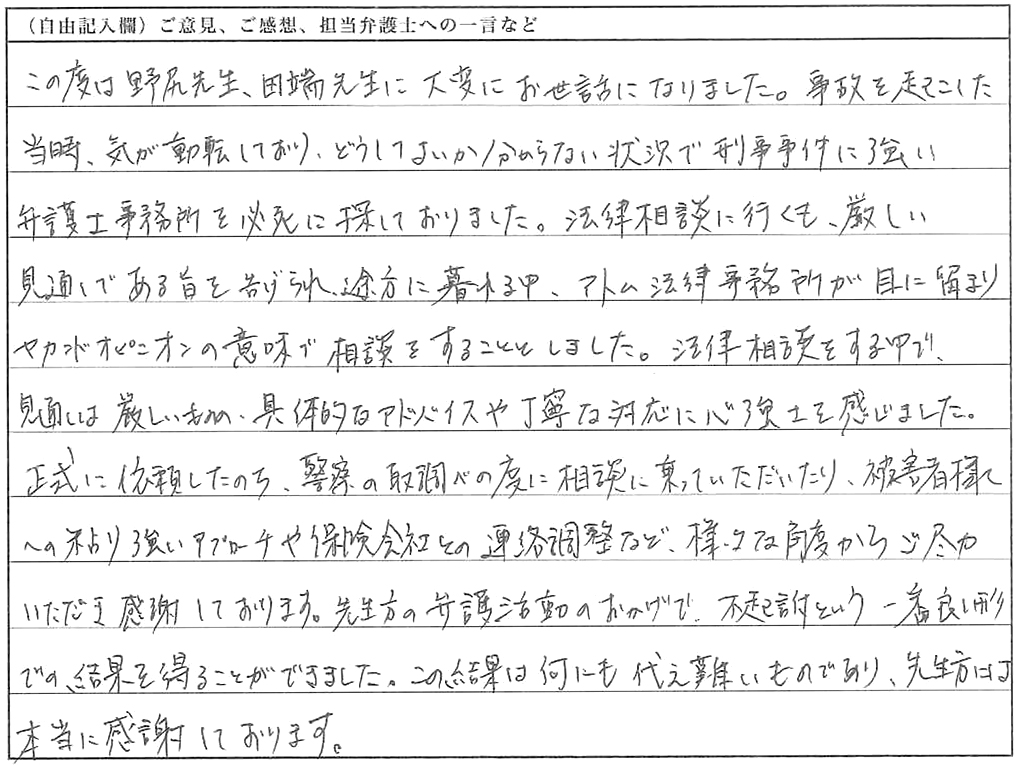 (自由記入欄)ご意見、ご感想、担当弁護士への一言など
この度は野尻先生、田端先生に大変にお世話になりました。事故を起こした
当時、気が動転しており、どうしてよいか分からない状況で刑事事件に強い
弁護士事務所を必死に探しておりました。法律相談に行くも、厳しい
見通しである旨を告げられ、途方に暮れる中、アトム法律事務所が目に留まり
セカンドオピニオンの意味で相談をすることとしました。法律相談をする中で、
見通しは厳しいものの、具体的なアドバイスや丁寧な対応に心強さを感じました。
正式に依頼したのち、警察の取調べの度に相談に乗っていただいたり、被害者様
への粘り強いアプローチや保険会社との連絡調整など、様々な角度からご尽力
いただき感謝しております。先生方の弁護活動のおかげで、不起訴という一番良い形
での結果を得ることができました。この結果は何にも代え難いものであり、先生方には
本当に感謝しております。